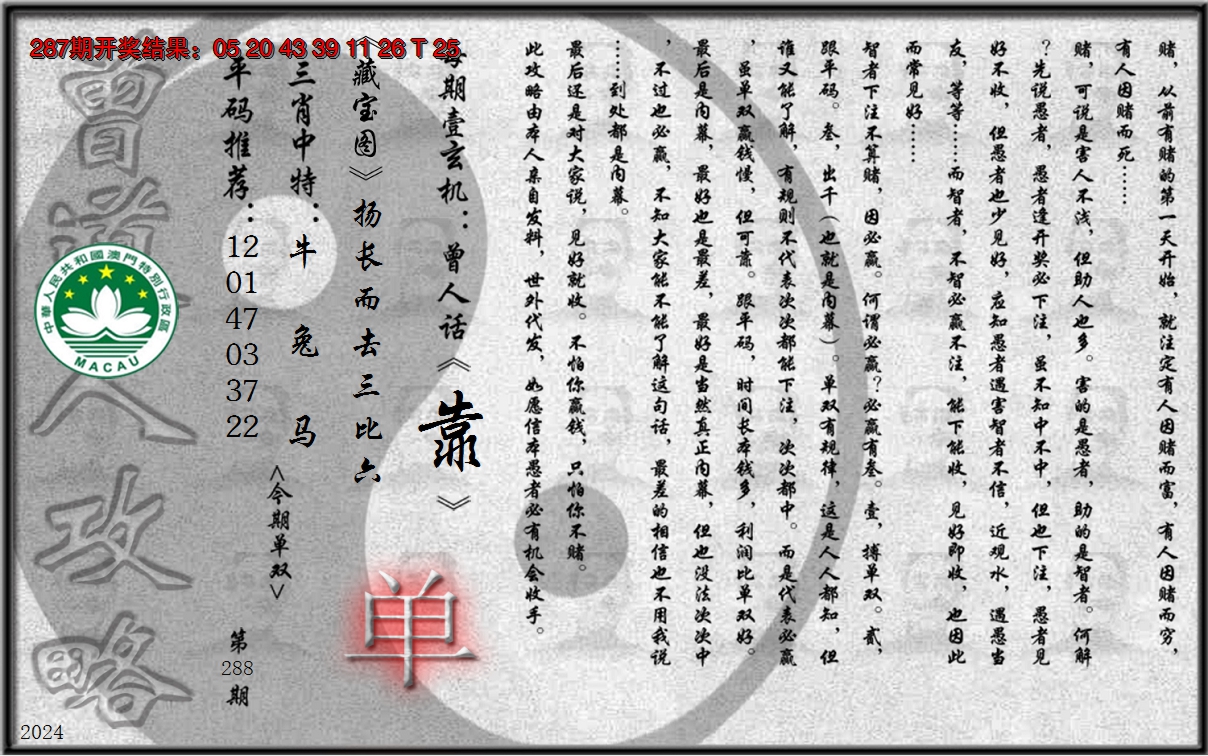 287期开奖结果：05 20 43 39 11 26 T 25
赌，从前有赌的第一天开始，就注定有人因赌而富，有人因赌而穷，
有人因赌而死……
赌，可说是害人不浅，但助人也多。害的是愚者，助的是智者。何解
？先说愚者，愚者逢开奖必下注，虽不知中不中，但也下注，愚者见
好不收，但愚者也少见好，应知愚者遇害智者不信，近观水，遇愚当
友，等等……而智者，不智必赢不注，能下能收，见好即收，也因此
而常见好……
智者下注不算赌，因必赢。何谓必赢？必赢有叁。壹，搏单双。贰，
跟平码。叁，出千（也就是内幕）。单双有规律，这是人人都知，但
谁又能了解，有规则不代表次次都能下注，次次都中。而是代表必赢
，虽单双赢钱慢，但可靠。跟平码，时间长本钱多，利润比单双好。
最后是内幕，最好也是最差，最好是当然真正内幕，但也没法次次中
，不过也必赢，不知大家能不能了解这句话，最差的相信也不用我说
……到处都是内幕。
最后还是对大家说，见好就收。不怕你赢钱，只怕你不赌。
此攻略由本人亲自发料，世外代发，如愿信本愚者必有机会收手。
每期壹玄机：曾人话《靠》
《藏宝图》扬长而去三比六
三肖中特：牛 兔 马
平码推荐：12 01 47 03 37 22
<今期单双>
单
第
288
期
曾道人攻略
中華人民共和國澳門特別行政區
MACAU
2024